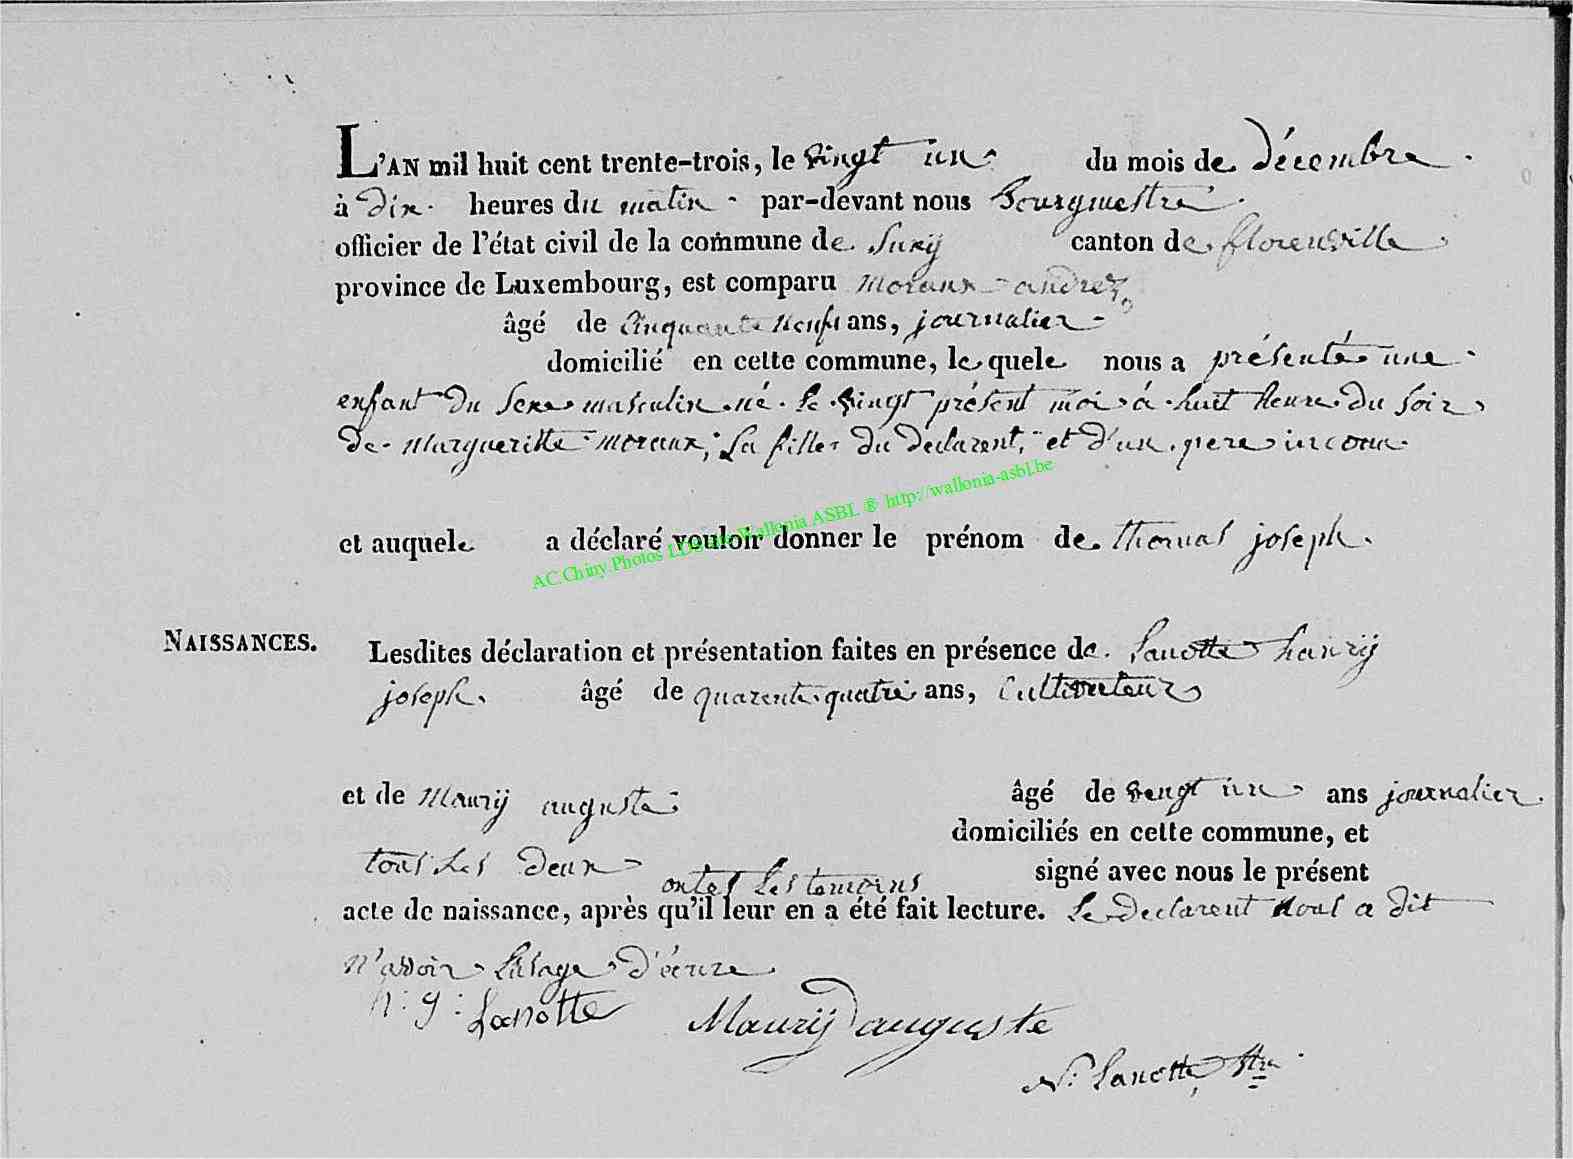 L'AN mil huit cent trente-trois, le vingt un du mois de décembre
à dix heures du matin par-devant nous Bourgmestre
officier de l'état civil de la commune de Suxÿ canton de florenville
province de Luxembourg, est comparu moraux andrez
âgé de Cinquante neuf ans, journalier
domicilié en cette commune, le quele nous a présenté une
enfant du Sexe masculin né le vingt présent moi à huit heure du soir
de margueritte moraux, la fille du declarent, et d'un pere inconu
et auquele a déclaré vouloir donner le prénom de thomas joseph.
AC.Chiny.Photos LDS pour Wallonia ASBL ® http://wallonia-asbl.be
NAISSANCES.
Lesdites déclaration et présentation faites en présence de Lanotte hanrÿ
joseph. âgé de quarente quatre ans, Cultivateur
et de Maurÿ auguste âgé de vengt un ans journalier
domiciliés en cette commune, et
tous les deux ontes les temoins signé avec nous le présent
acte de naissance, après qu'il leur en a été fait lecture. le declarent nous a dit
n'avoir lusage d'écrire
h: g: Lanotte Maurÿ auguste
N: Lanotte